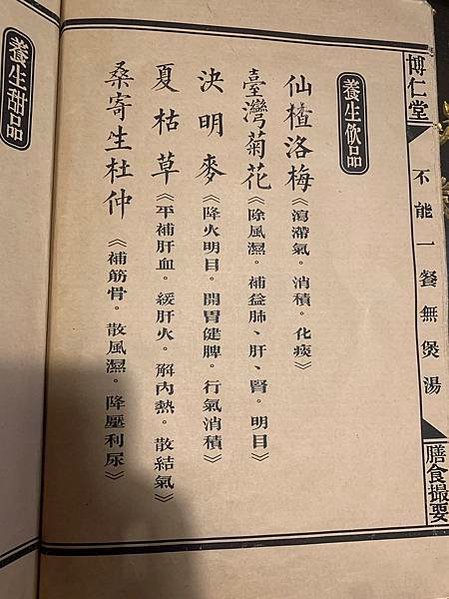 博仁堂
不能一餐無煲湯
膳食撮要
養生飲品
仙楂洛梅《瀉滯氣。消積。化痰》
臺灣菊花《除風濕。補益肺、肝、腎。明目》
決明麥《降火明目。開胃健脾。行氣消積》
夏枯草《平補肝血。緩肝火。解內熱。散結氣》
桑寄生杜仲《補筋骨。散風濕。降壓利尿》
養生甜品